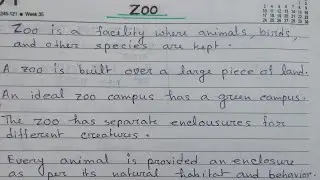 246-121 ■ Week 35
ZOO
Zoo is a facility where animals, birds,
and other species are kept.
A zoo is built over a large piece of land.
An ideal zoo campus has a green campus.
The zoo has separate enclousures for
different creatures.
Every animal is provided an enclosure
as per its natural habitat and behavior.